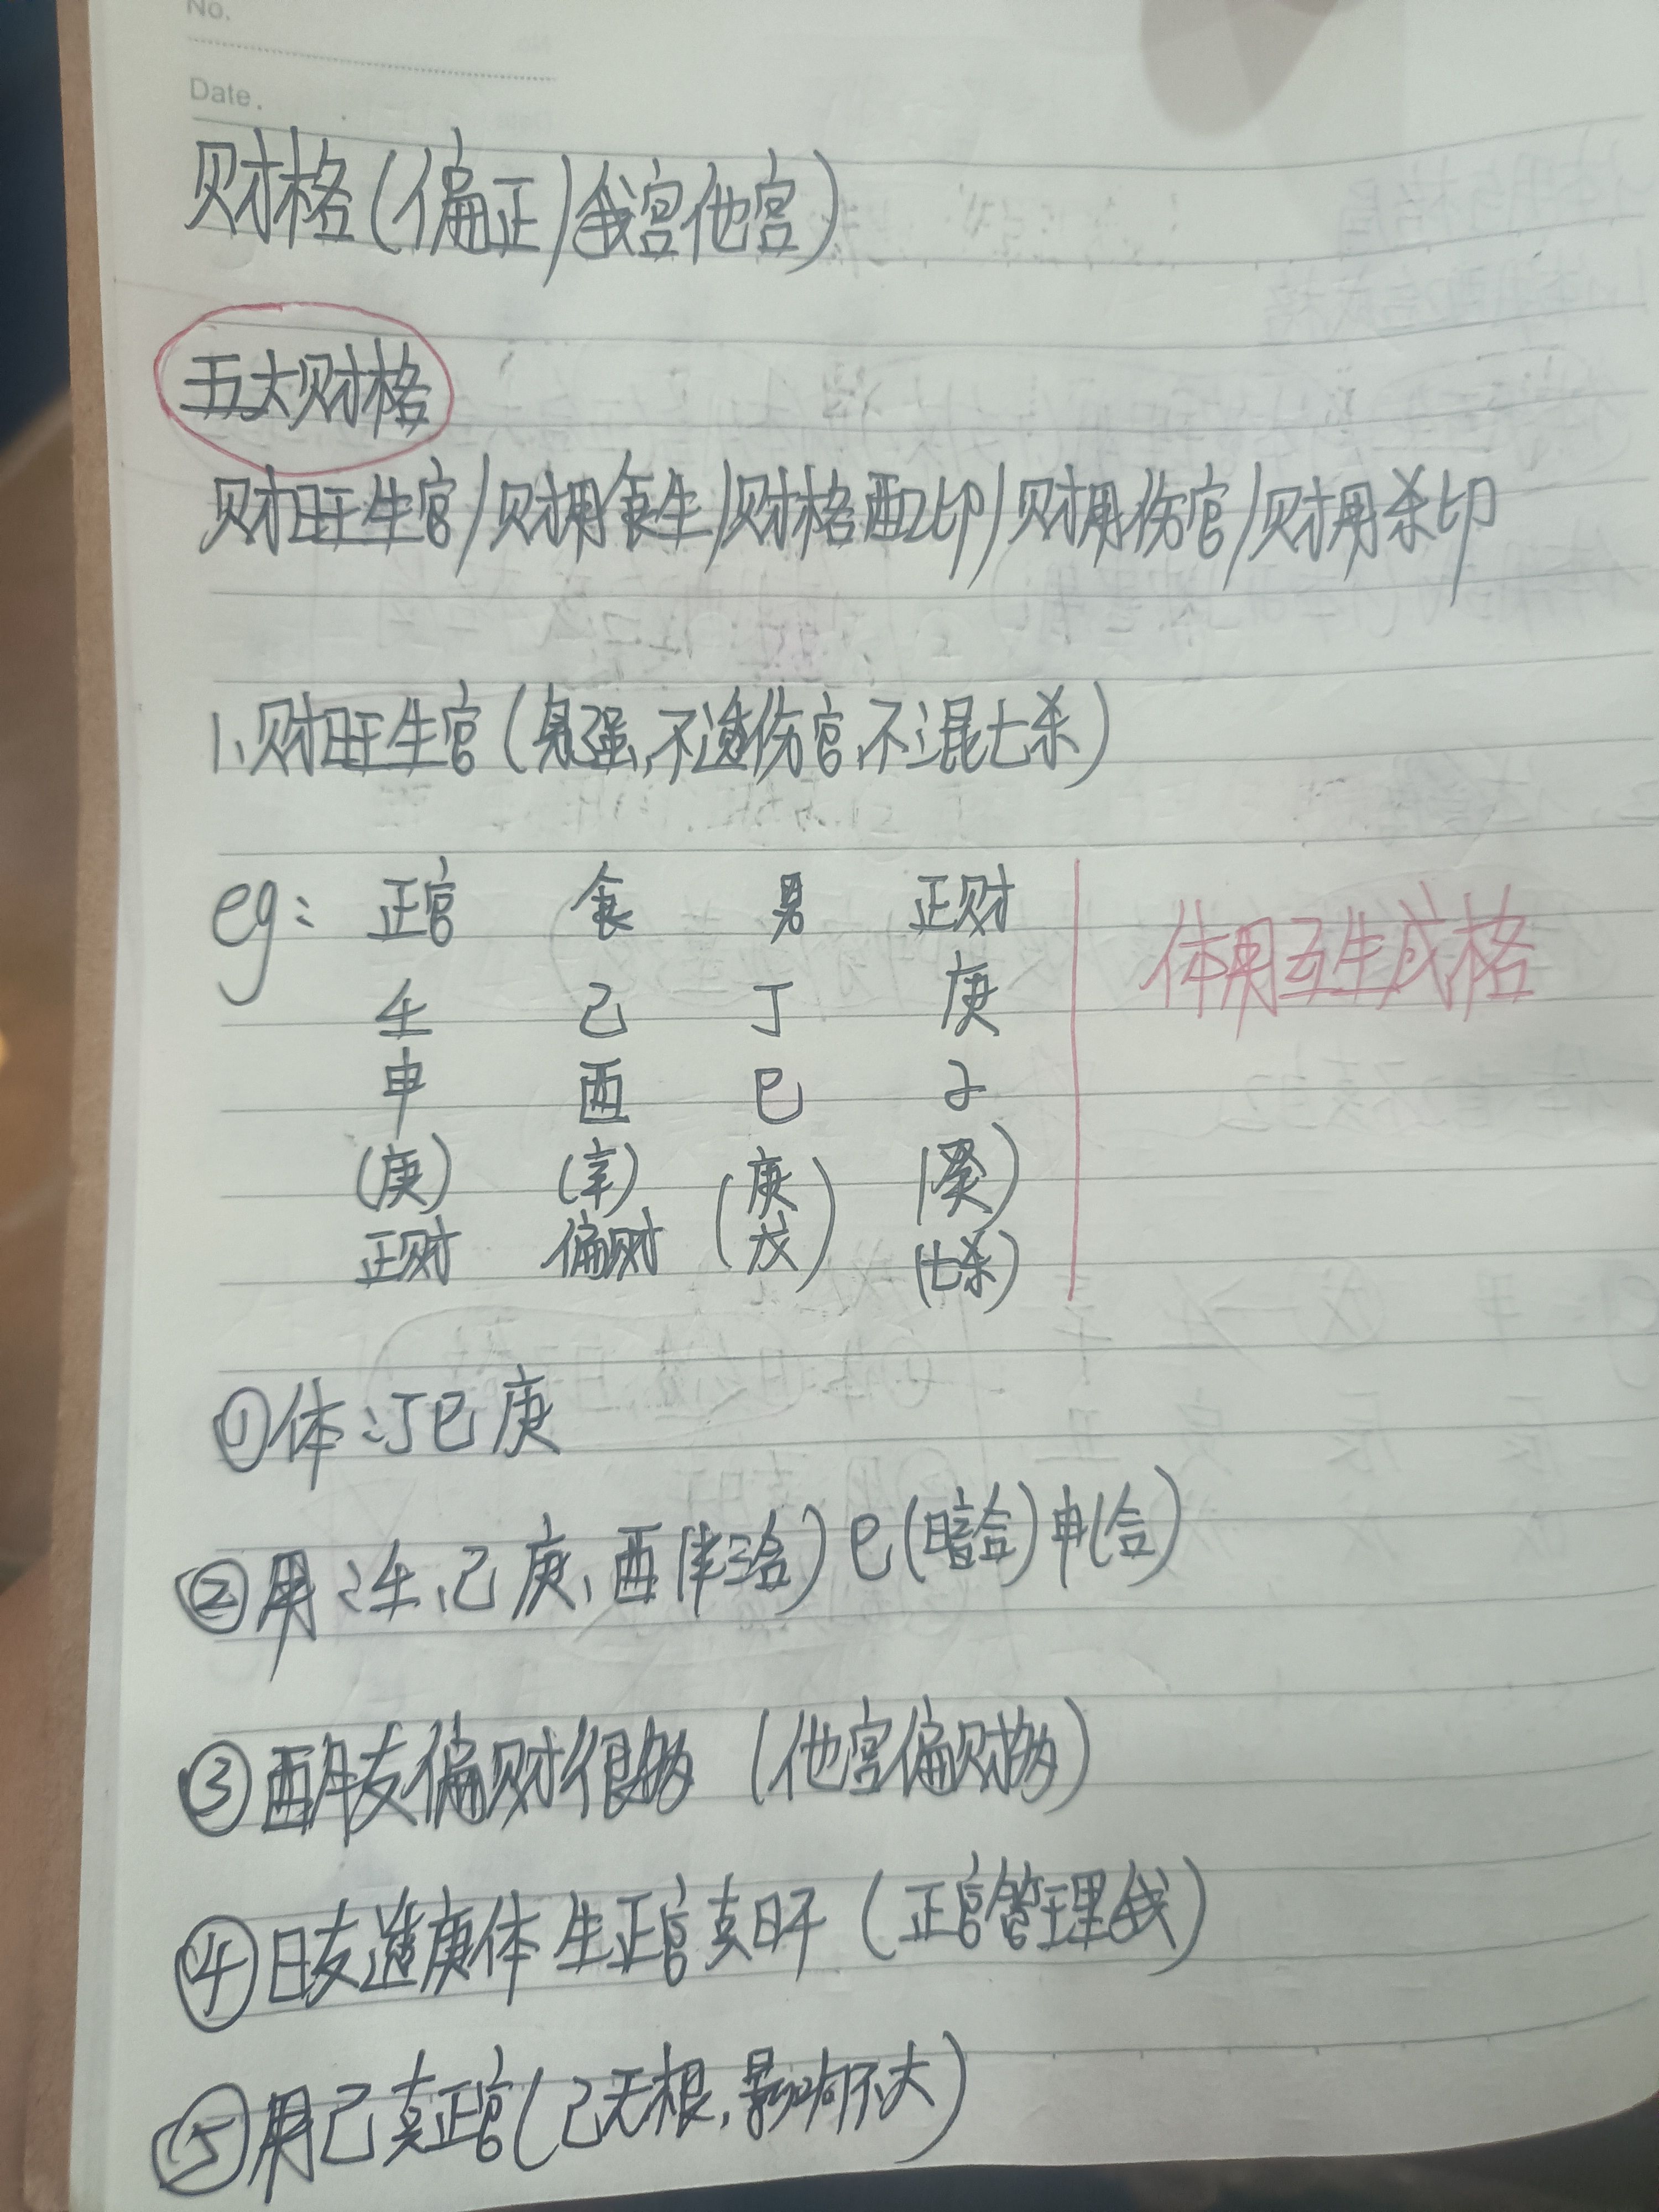 No.
Date.
财格(偏正/我宫他宫)
五大财格
财旺生官/财用食生/财格配印/财用伤官/财用杀印
1、财旺生官(身强,不透伤官,不混七杀)
eg: 正官 食 男 正财
壬 己 丁 庚
申 酉 巳 子
(庚) (辛) (庚戊) (癸)
正财 偏财 (七杀)
体用互生成格
①体:丁巳庚
②用:壬、己庚、酉(半三合)巳(暗合)申(合)
③酉月支偏财很多(他宫偏财多)
④日支透庚体 生正官克日干(正官管理我)
⑤用己克正官(己无根,影响不大)